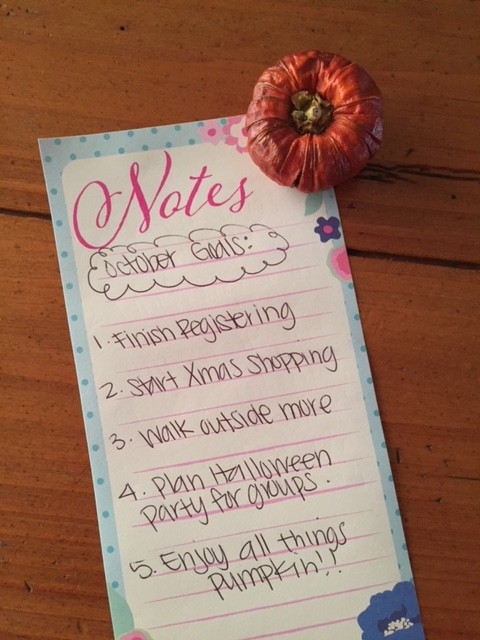 Notes
October Goals:
1. Finish Registering
2. Start Xmas Shopping
3. Walk outside more
4. Plan Halloween
party for groups.
5. Enjoy all things
pumpkin!!